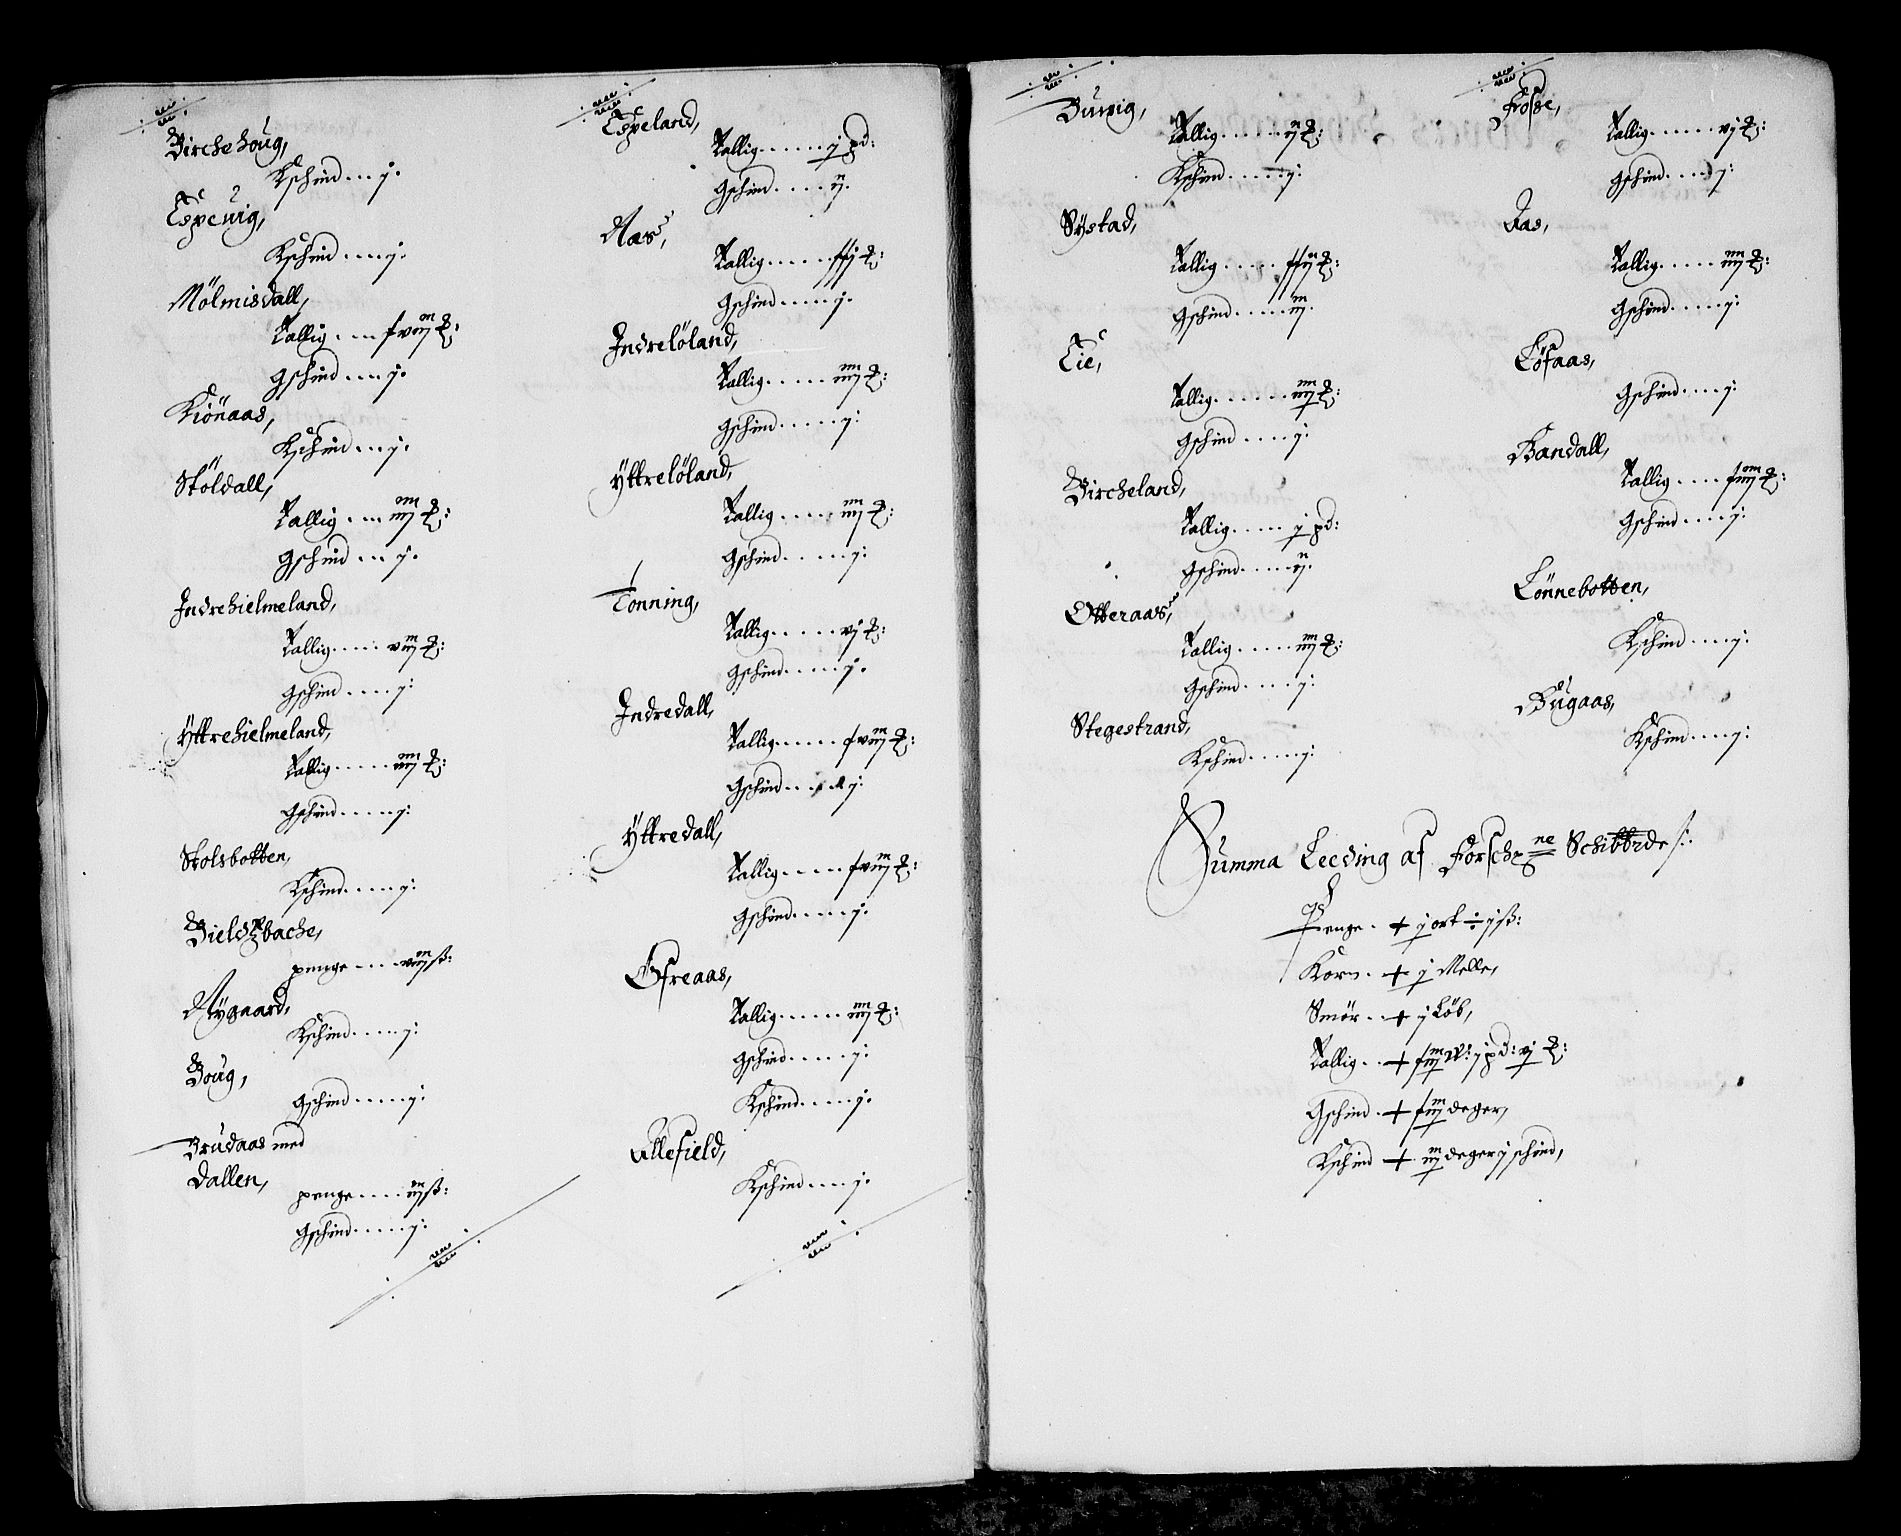 Birchehoug,
Kschind ... j.
Espeuig,
Kschind .... j.
Mölmisdall,
Tallig .... xviij ℔:
Gschind .... j.
Kiönaas,
Kschind ... j.
Stöldall,
Tallig .... iiij ℔:
Gschind ... j.
Indrehielmeland,
Tallig ..... viij ℔:
Gschind ..... j:
Yttrehielmeland,
Tallig ..... ℔:
Gschind ..... j:
Stolsbotten,
Kschind ..... j:
Bieldsbache,
penge .... viijß:
Nygaard,
Kschind ..... j:
Houg,
Gschind ..... j:
Brudaas med
Dallen,
penge .... iijß:
Gschind ..... j:
Espeland,
Tallig ...... j pd:
Gschind ..... ij.
Aas,
Tallig ...... xxj ℔:
Gschind ..... j.
Indrelöland,
Tallig ...... iiij ℔:
Gschind ..... j:
Yttrelöland,
Tallig ..... iiij ℔:
Gschind ...... j:
Tonning,
Tallig ...... vj ℔:
Gschind ..... j.
Indredall,
Tallig ...... xviij ℔:
Gschind ..... j:
Yttredall,
Tallig ...... xviij ℔:
Gschind ..... j:
Öfreaas,
Tallig ...... iiij ℔:
Gschind ..... j:
Kschind ..... j.
Ullefield,
Kschind .... j.
Buuig,
Tallig ...... ij ℔:
Kschind ..... j:
Systad,
Tallig ..... xxij ℔:
Gschind ..... iij.
Eie,
Tallig ...... iiij ℔:
Gschind .... j:
Bircheland,
Tallig ..... j pd:
Gschind ..... ij.
Otteraas,
Tallig ..... iiij ℔:
Gschind ..... j:
Stegestrand,
Kschind ..... j:
Fosse,
Tallig ..... vj ℔:
Gschind ..... j:
Aas,
Tallig ..... iiij ℔:
Gschind ..... j:
Löfaas,
Gschind .... j:
Bandall,
Tallig .... xiiij ℔:
Gschind .... j:
Lönnebotten,
Kschind .... j:
Bugaas,
Kschind .... j:
Summa Leeding af Forschne Schibbrde /:
Penge . + j ort ÷ jß:
Korn . + j Melle,
Smör .. + j Löb,
Tallig .. + xiij W: j pd: vj ℔:
Gschind . + xiij deger,
Kschind + iij deger j schind,